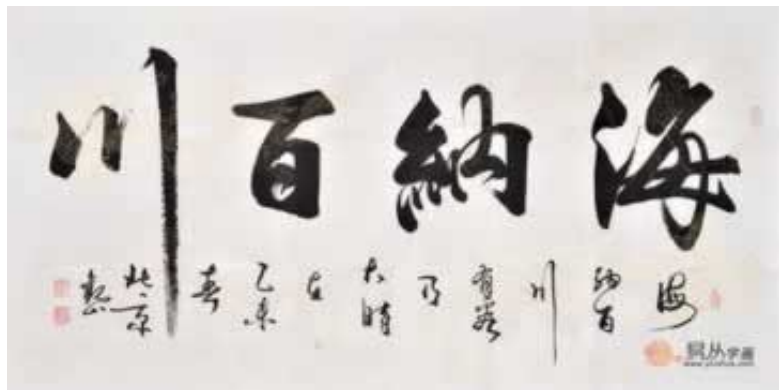 海納百川
海納百川有容乃大時在乙未春於北京
易从字画